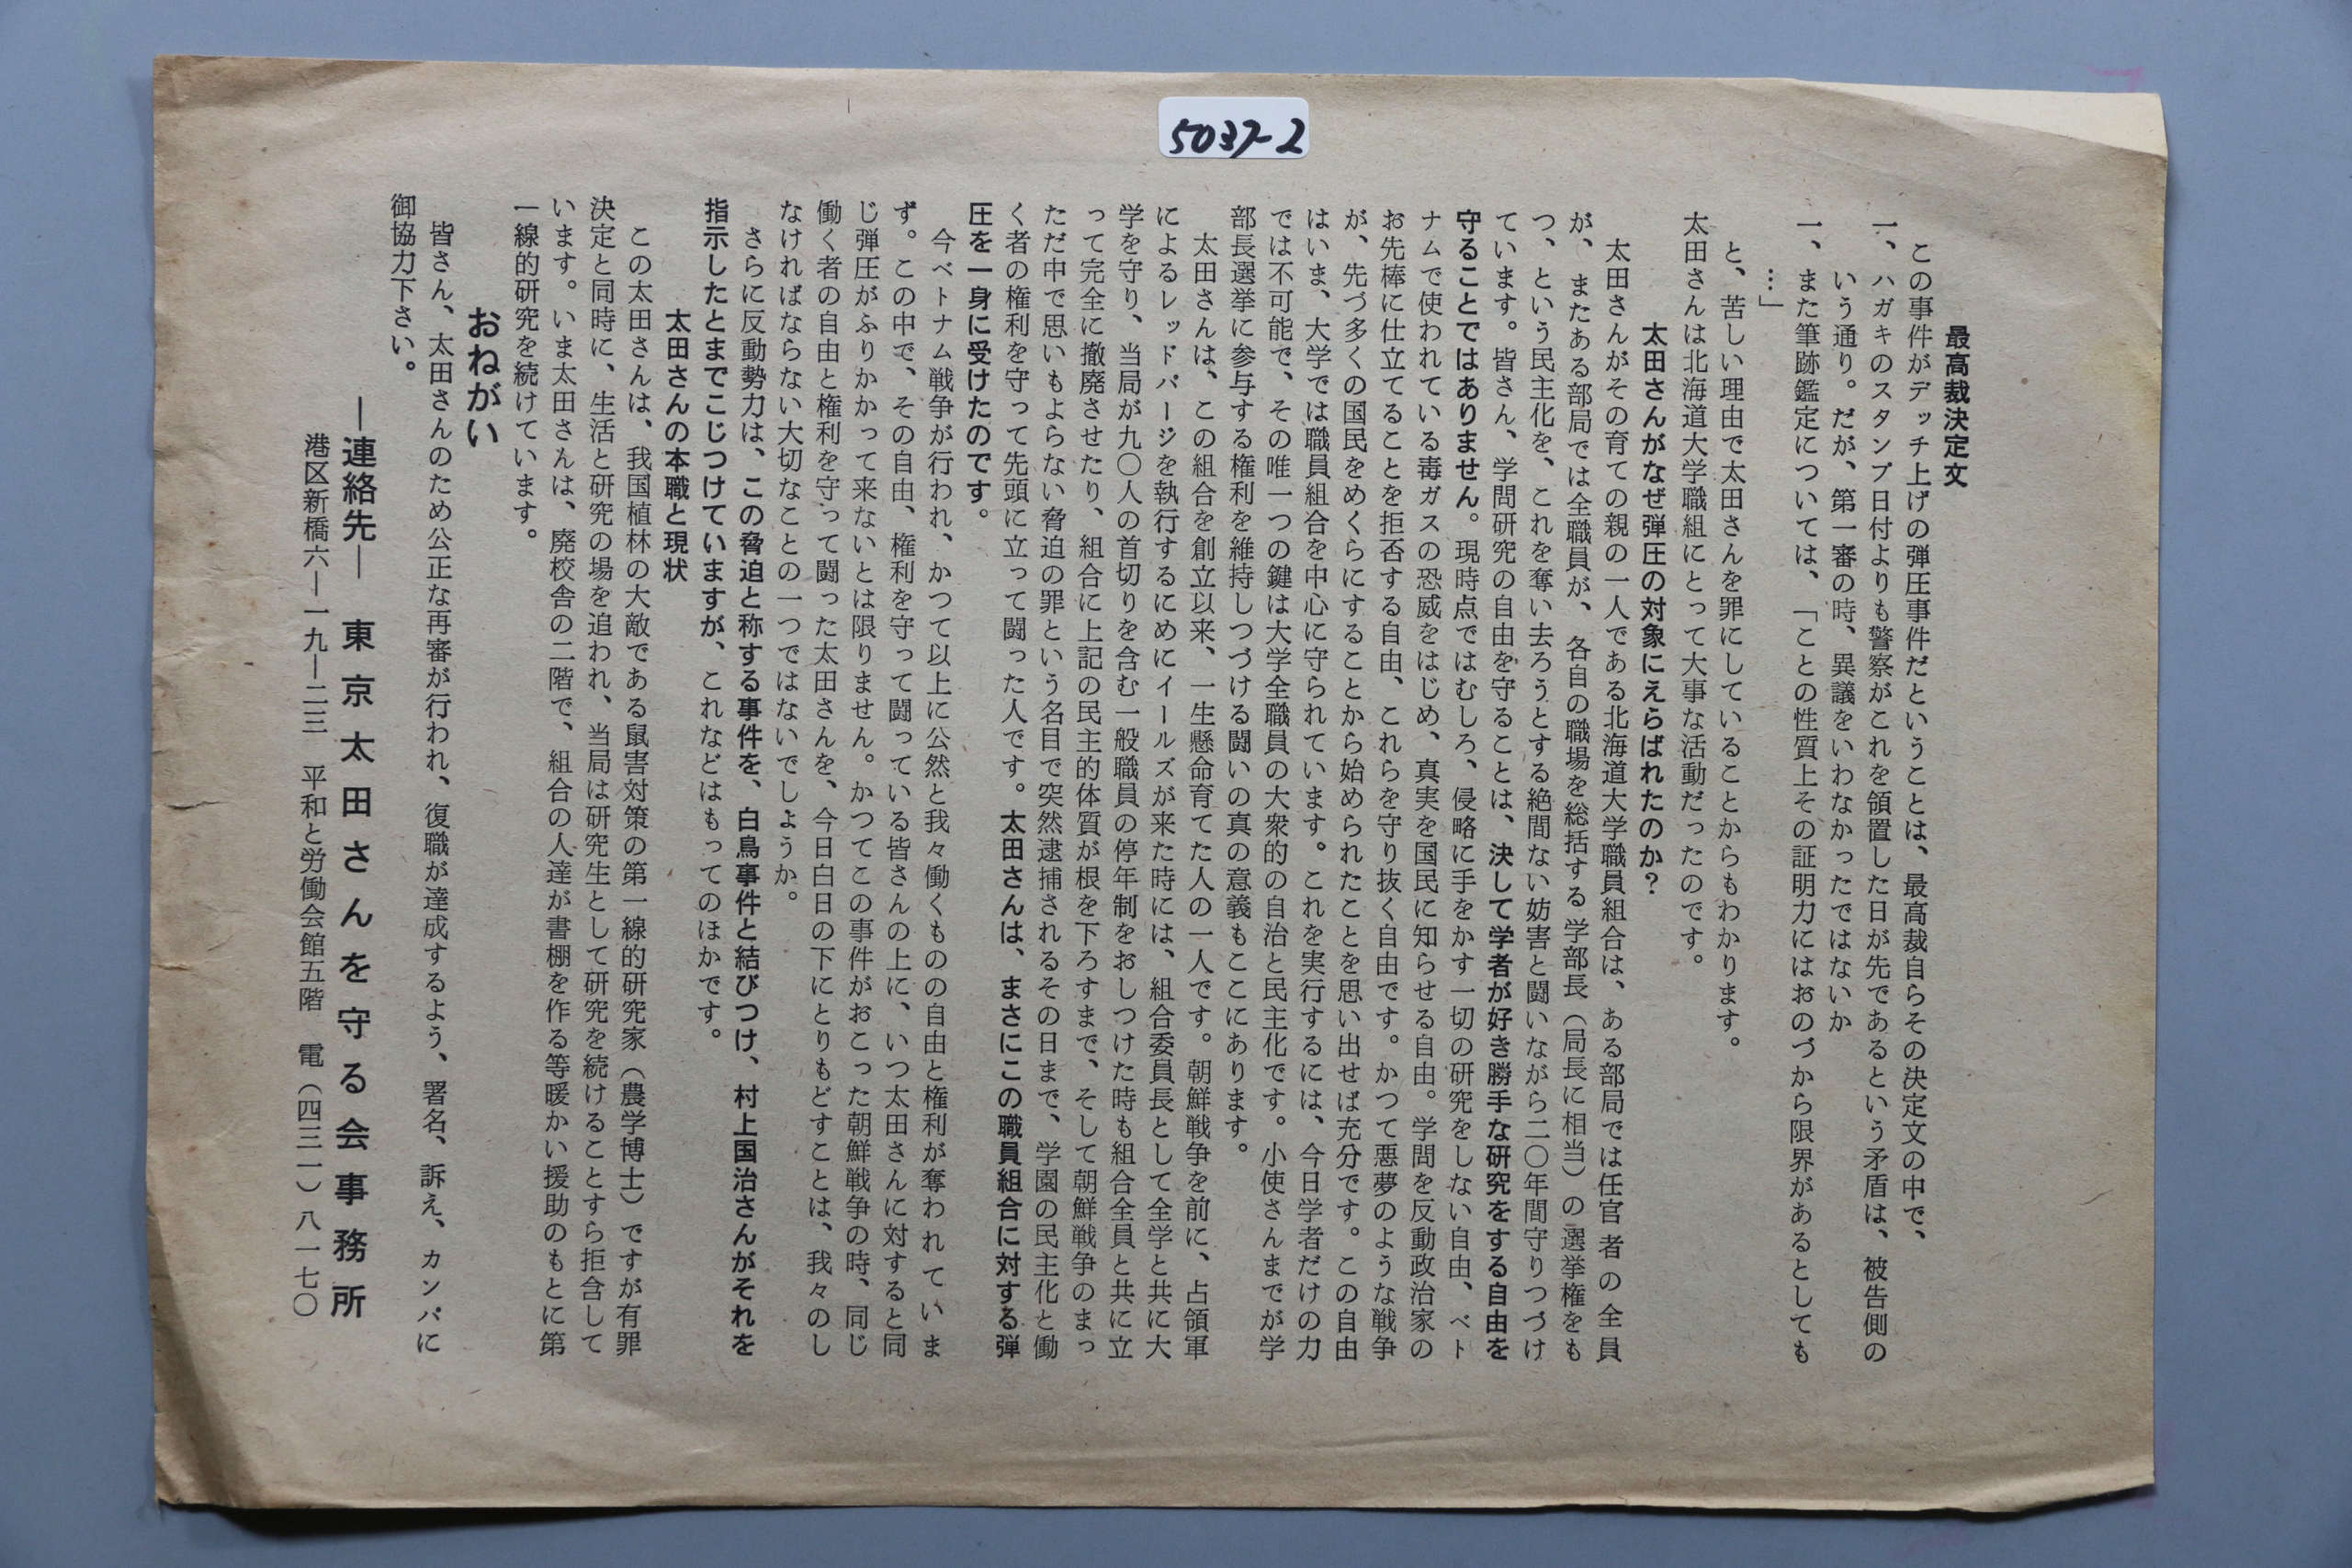 5037-2
最高裁決定文
この事件がデッチ上げの弾圧事件だということは、最高裁自らその決定文の中で、
一、ハガキのスタンプ日付よりも警察がこれを領置した日が先であるという矛盾は、被告側の
いう通り。だが、第一審の時、異議をいわなかったではないか
一、また筆跡鑑定については、「ことの性質上その証明力にはおのづから限界があるとしても
…」
と、苦しい理由で太田さんを罪にしていることからもわかります。
太田さんは北海道大学職組にとって大事な活動だったのです。
太田さんがなぜ弾圧の対象にえらばれたのか?
太田さんがその育ての親の一人である北海道大学職員組合は、ある部局では任官者の全員
が、またある部局では全職員が、各自の職場を総括する学部長(局長に相当)の選挙権をも
つ、という民主化を、これを奪い去ろうとする絶間ない妨害と闘いながら二〇年間守りつづけ
ています。皆さん、学問研究の自由を守ることは、決して学者が好き勝手な研究をする自由を
守ることではありません。現時点ではむしろ、侵略に手をかす一切の研究をしない自由、ベト
ナムで使われている毒ガスの恐威をはじめ、真実を国民に知らせる自由。学問を反動政治家の
お先棒に仕立てることを拒否する自由、これらを守り抜く自由です。かつて悪夢のような戦争
が、先づ多くの国民をめくらにすることから始められたことを思い出せば充分です。この自由
はいま、大学では職員組合を中心に守られています。これを実行するには、今日学者だけの力
では不可能で、その唯一つの鍵は大学全職員の大衆的の自治と民主化です。小使さんまでが学
部長選挙に参与する権利を維持しつづける闘いの真の意義もここにあります。
太田さんは、この組合を創立以来、一生懸命育てた人の一人です。朝鮮戦争を前に、占領軍
によるレッドパージを執行するにめにイールズが来た時には、組合委員長として全学と共に大
学を守り、当局が九〇人の首切りを含む一般職員の停年制をおしつけた時も組合全員と共に立
って完全に撤廃させたり、組合に上記の民主的体質が根を下ろすまで、そして朝鮮戦争のまっ
ただ中で思いもよらない脅迫の罪という名目で突然逮捕されるその日まで、学園の民主化と働
く者の権利を守って先頭に立って闘った人です。太田さんは、まさにこの職員組合に対する弾
圧を一身に受けたのです。
今ベトナム戦争が行われ、かつて以上に公然と我々働くものの自由と権利が奪われていま
ず。この中で、その自由、権利を守って闘っている皆さんの上に、いつ太田さんに対すると同
じ弾圧がふりかかって来ないとは限りません。かつてこの事件がおこった朝鮮戦争の時、同じ
働く者の自由と権利を守って闘った太田さんを、今日白日の下にとりもどすことは、我々のし
なければならない大切なことの一つではないでしょうか。
さらに反動勢力は、この脅迫と称する事件を、白鳥事件と結びつけ、村上国治さんがそれを
指示したとまでこじつけていますが、これなどはもってのほかです。
太田さんの本職と現状
この太田さんは、我国植林の大敵である鼠害対策の第一線的研究家(農学博士)ですが有罪
決定と同時に、生活と研究の場を追われ、当局は研究生として研究を続けることすら拒含して
います。いま太田さんは、廃校舎の二階で、組合の人達が書棚を作る等暖かい援助のもとに第
一線的研究を続けています。
おねがい
皆さん、太田さんのため公正な再審が行われ、復職が達成するよう、署名、訴え、カンパに
御協力下さい。
―連絡先― 東京太田さんを守る会事務所
港区新橋六―一九―二三 平和と労働会館五階 電(四三一)八一七〇